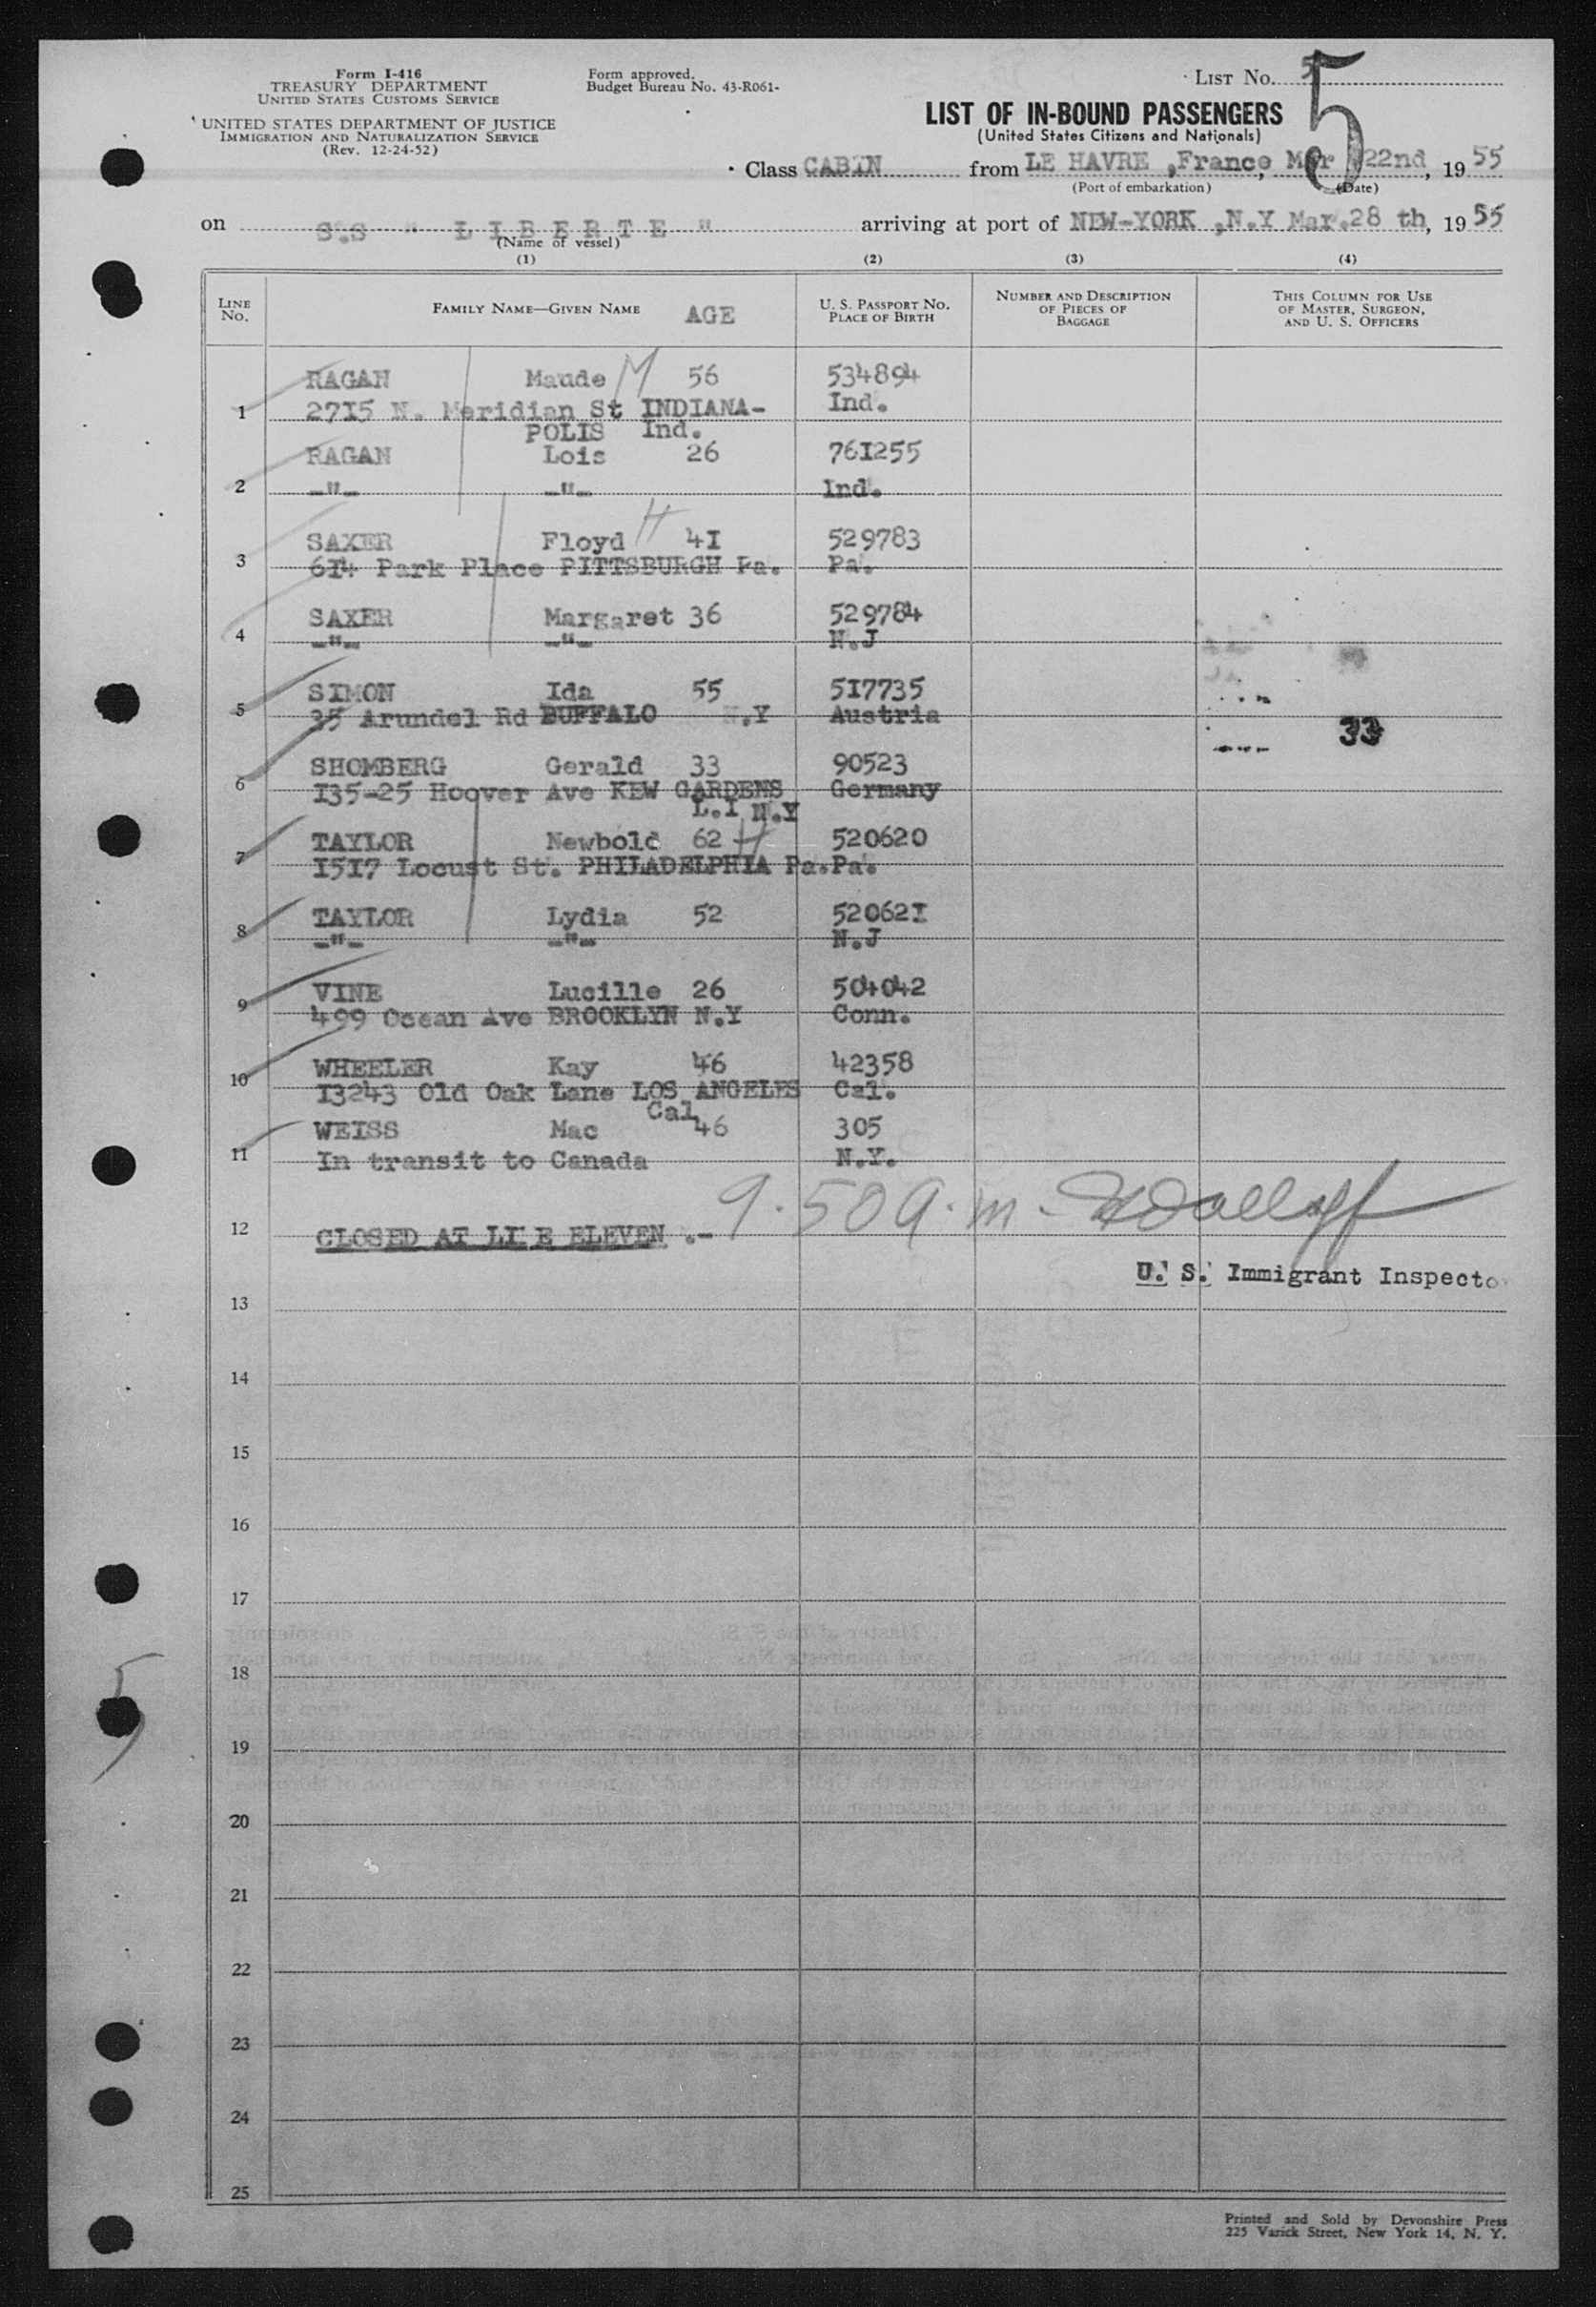 Form I-416
TREASURY DEPARTMENT
UNITED STATES CUSTOMS SERVICE
UNITED STATES DEPARTMENT OF JUSTICE
IMMIGRATION AND NATURALIZATION SERVICE
(Rev. 12-24-52)
Form approved.
Budget Bureau No. 43-R061-
LIST No. 5
5
LIST OF IN-BOUND PASSENGERS
(United States Citizens and Nationals)
Class CABIN from LE HAVRE ,France, Mar 22nd, 1955
(Port of embarkation) (Date)
on S.S " L I B E R T E " arriving at port of NEW-YORK ,N.Y Mar.28 th, 1955
(Name of vessel)
(1) (2) (3) (4)
LINE No. FAMILY NAME—GIVEN NAME AGE U. S. PASSPORT No. PLACE OF BIRTH NUMBER AND DESCRIPTION OF PIECES OF BAGGAGE THIS COLUMN FOR USE OF MASTER, SURGEON, AND U. S. OFFICERS
RAGAN Maude M 56 534894
1 27I5 N. Meridian St INDIANA- Ind.
POLIS Ind.
RAGAN Lois 26 76I255
2 -"- -"- Ind.
SAXER Floyd H 4I 529783
3 6I4 Park Place PITTSBURGH Pa. Pa.
SAXER Margaret 36 529784
4 -"- -"- N.J
SIMON Ida 55 5I7735
5 35 Arundel Rd BUFFALO N.Y Austria
33
SHOMBERG Gerald 33 90523
6 I35-25 Hoover Ave KEW GARDENS Germany
L.I N.Y
TAYLOR Newbold 62 H 520620
7 I5I7 Locust St. PHILADELPHIA Pa. Pa.
TAYLOR Lydia 52 52062I
8 -"- -"- N.J
VINE Lucille 26 504042
9 499 Ocean Ave BROOKLYN N.Y Conn.
WHEELER Kay 46 42358
10 I3243 Old Oak Lane LOS ANGELES Cal.
Cal
WEISS Mac 46 305
11 In transit to Canada N.Y.
9.50 a.m.
12 CLOSED AT LI E ELEVEN .-
U. S. Immigrant Inspecto
13
14
15
16
17
18
19
20
21
22
23
24
25
5
Printed and Sold by Devonshire Press
225 Varick Street, New York 14, N. Y.